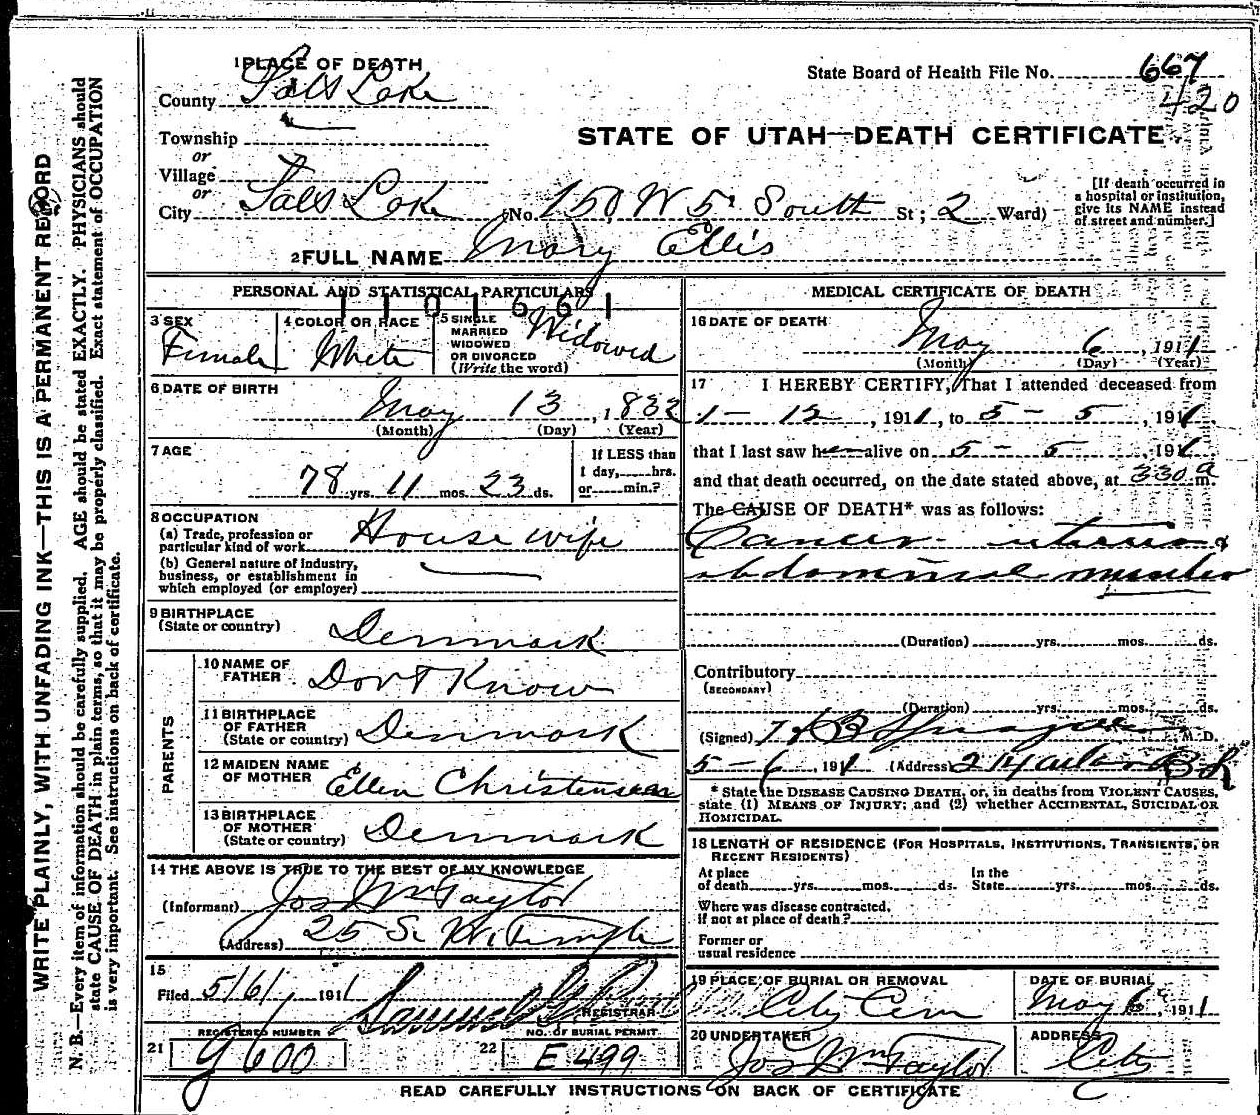 WRITE PLAINLY, WITH UNFADING INK—THIS IS A PERMANENT RECORD
N. B.—Every item of information should be carefully supplied. AGE should be stated EXACTLY. PHYSICIANS should
state CAUSE OF DEATH in plain terms, so that it may be properly classified. Exact statement of OCCUPATION
is very important. See instructions on back of certificate.
1 PLACE OF DEATH
State Board of Health File No. 667
420
County Salt Lake
Township
or
Village
or
STATE OF UTAH—DEATH CERTIFICATE
City Salt Lake (No. 150 W 5 South St; 2 Ward)
[If death occurred in
a hospital or institution,
give its NAME instead
of street and number.]
2 FULL NAME Mary Ellis
PERSONAL AND STATISTICAL PARTICULARS
1101661
3 SEX
Female
4 COLOR OR RACE
White
5 SINGLE
MARRIED
WIDOWED
OR DIVORCED
(Write the word)
Widowed
6 DATE OF BIRTH
May 13, 1832
(Month) (Day) (Year)
7 AGE
78 yrs. 11 mos. 23 ds.
If LESS than
1 day, hrs.
or min.?
8 OCCUPATION
(a) Trade, profession or
particular kind of work House wife
(b) General nature of industry,
business, or establishment in
which employed (or employer)
9 BIRTHPLACE
(State or country) Denmark
PARENTS
10 NAME OF
FATHER Dont Know
11 BIRTHPLACE
OF FATHER
(State or country) Denmark
12 MAIDEN NAME
OF MOTHER Ellen Christensen
13 BIRTHPLACE
OF MOTHER
(State or country) Denmark
14 THE ABOVE IS TRUE TO THE BEST OF MY KNOWLEDGE
(Informant) Jos Wm Taylor
(Address) 25 S. W. Temple
15
Filed 5/6/ 1911 Samuel G. REGISTRAR
REGISTERED NUMBER
21 9600
NO. OF BURIAL PERMIT
22 E 499
MEDICAL CERTIFICATE OF DEATH
16 DATE OF DEATH
May 6, 1911
(Month) (Day) (Year)
17 I HEREBY CERTIFY, That I attended deceased from
1 - 12, 1911, to 5 - 5, 1911
that I last saw her alive on 5 - 5, 1911
and that death occurred, on the date stated above, at 330 a m.
The CAUSE OF DEATH* was as follows:
Cancer - uterus &
abdominal muscles
(Duration) yrs. mos. ds.
Contributory
(SECONDARY)
(Duration) yrs. mos. ds.
(Signed) B Sprague M. D.
5 - 6, 1911 (Address)
* State the DISEASE CAUSING DEATH, or, in deaths from VIOLENT CAUSES,
state (1) MEANS OF INJURY; and (2) whether ACCIDENTAL, SUICIDAL OR
HOMICIDAL.
18 LENGTH OF RESIDENCE (FOR HOSPITALS, INSTITUTIONS, TRANSIENTS, OR
RECENT RESIDENTS)
At place
of death yrs. mos. ds.
In the
State yrs. mos. ds.
Where was disease contracted,
if not at place of death?
Former or
usual residence
19 PLACE OF BURIAL OR REMOVAL
City Cem
DATE OF BURIAL
May 6, 1911
20 UNDERTAKER
Jos Wm Taylor
ADDRESS
City
READ CAREFULLY INSTRUCTIONS ON BACK OF CERTIFICATE